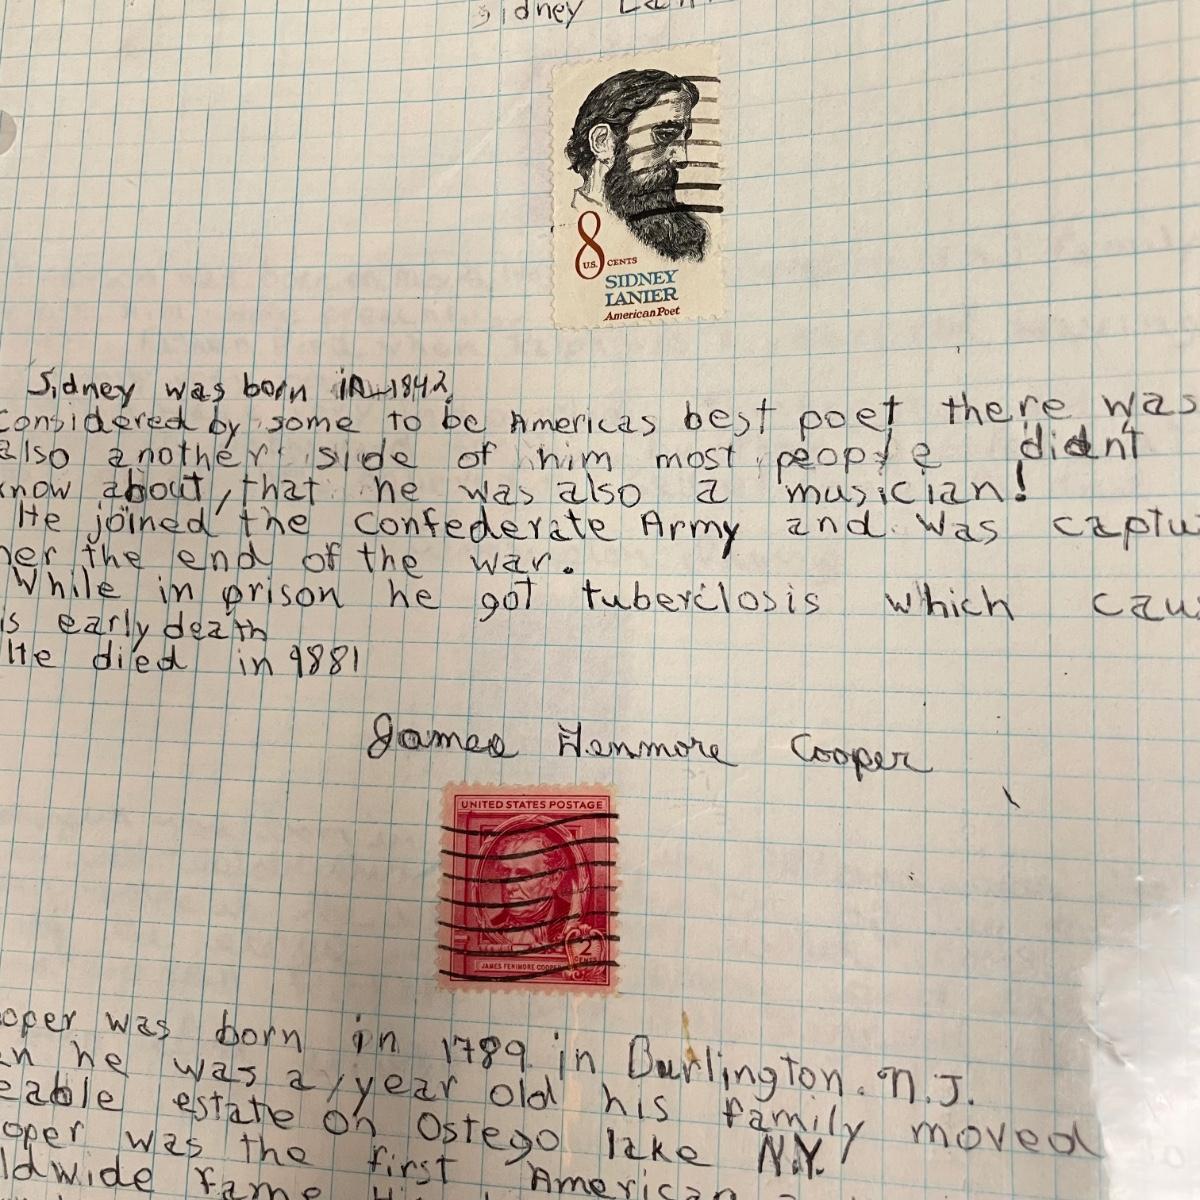 Sidney
8
U.S. CENTS
SIDNEY
LANIER
American Poet
Sidney was born in 1842
considered by some to be Americas best poet there was
also another side of him most people didnt
know about, that he was also a musician!
He joined the Confederate Army and was captu
ner the end of the war.
While in prison he got tuberclosis which cau
is early death
He died in 1881
James Fenmore Cooper
UNITED STATES POSTAGE
2
CENTS
JAMES FENIMORE COOPER
ooper was born in 1789 in Burlington. N.J.
en he was a year old his family moved
eable estate on Ostego lake N.Y.
ooper was the first American
ldwide fame